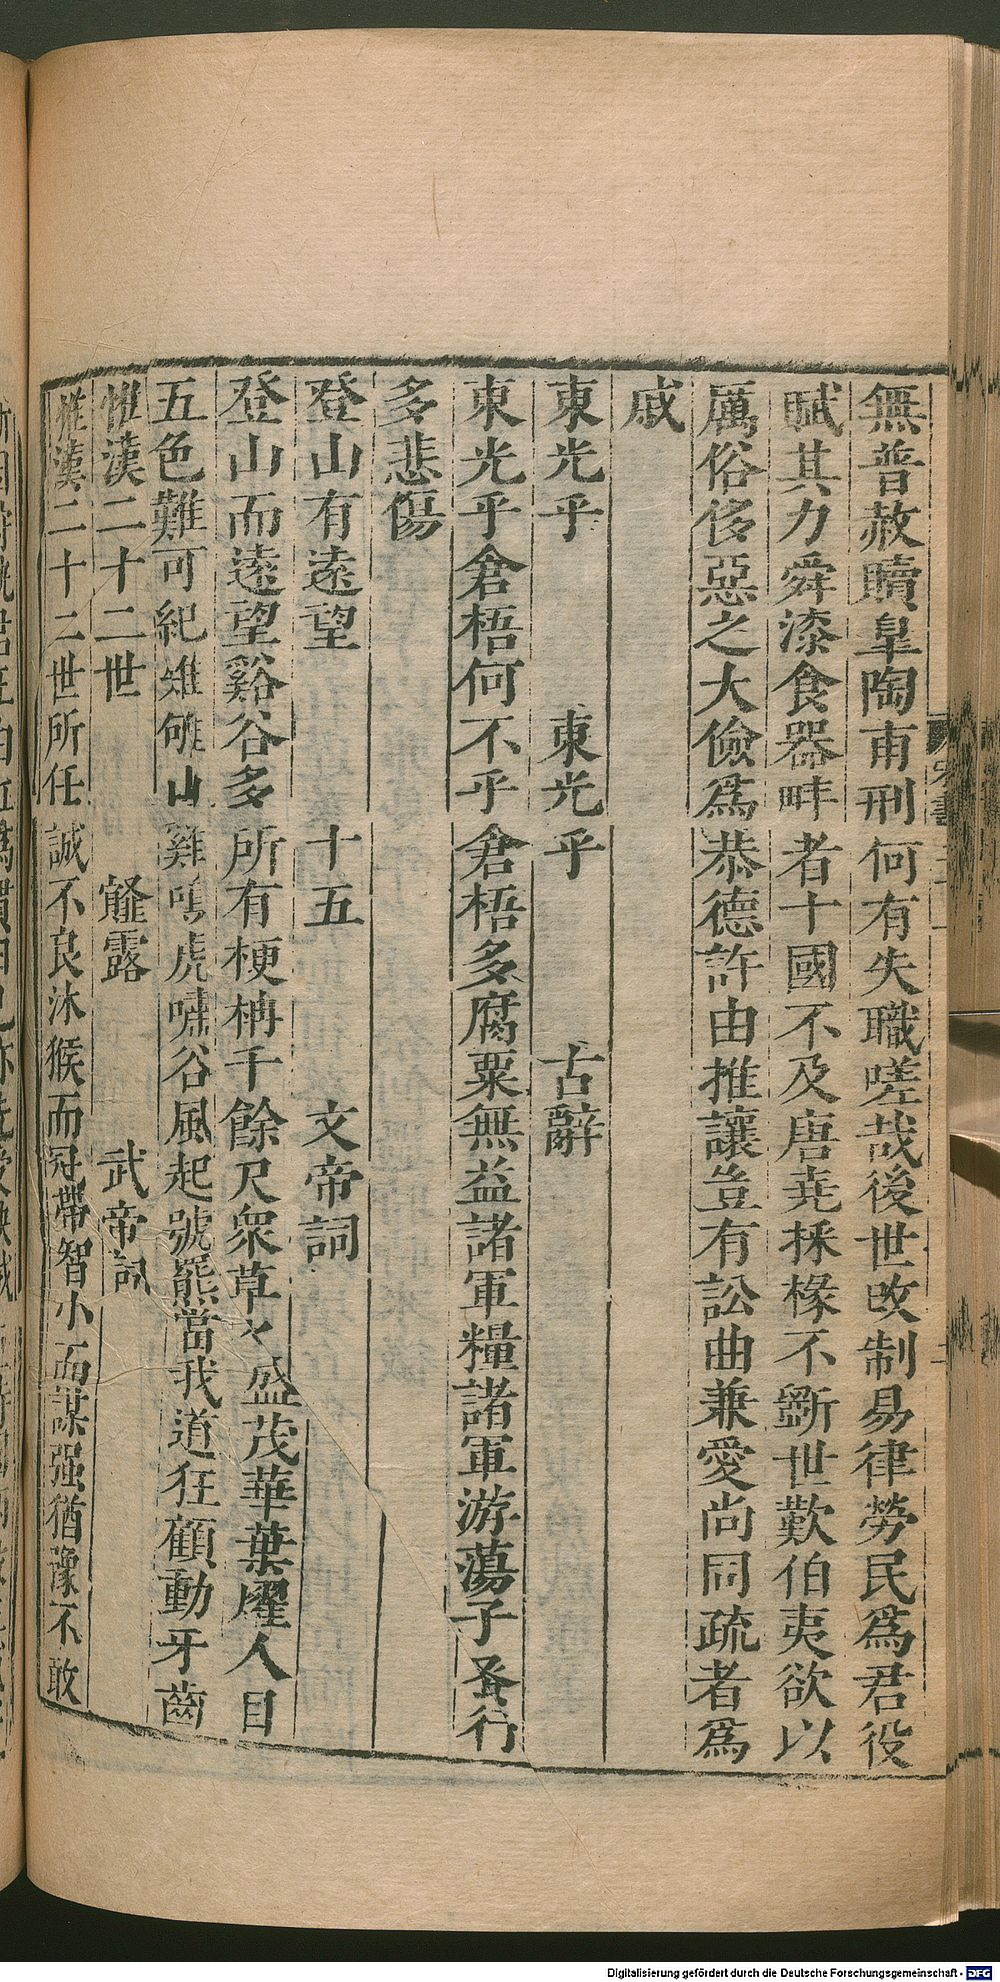 無普赦贖臯陶甫刑何有失職嗟哉後世改制易律勞民爲君役
賦其力舜漆食器畔者十國不及唐堯採椽不斵世歎伯夷欲以
厲俗侈惡之大儉爲恭德許由推讓豈有訟曲兼愛尚同疏者爲
戚
東光乎　東光乎　古辭
東光乎倉梧何不乎倉梧多腐粟無益諸軍糧諸軍游蕩子蚤行
多悲傷
登山有遠望　十五　文帝詞
登山而遠望谿谷多所有梗柟千餘尺衆草之盛茂華葉燿人目
五色難可紀雉雊山雞鳴虎嘯谷風起號羆當我道狂顧動牙齒
惟漢二十二世　薤露　武帝詞
惟漢二十二世所任誠不良沐猴而冠帶智小而謀强猶豫不敢
Digitalisierung gefördert durch die Deutsche Forschungsgemeinschaft - DFG